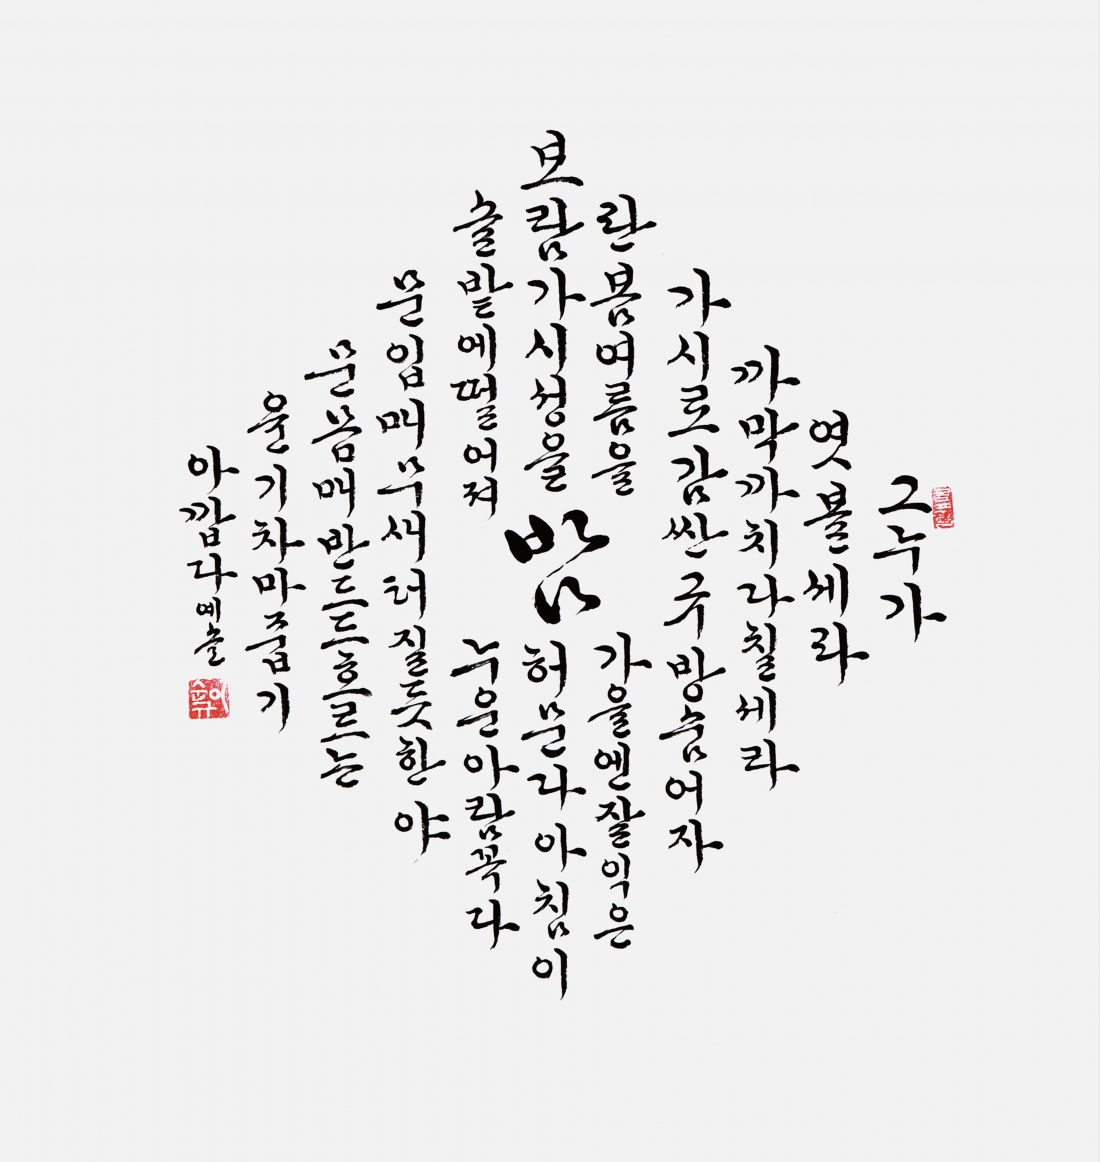 그누가
엿볼세라
까막까치라칠세라
가시로감싼규방숨어자
란봄여름을
가을엔잘익은
보람가시성을
밤
허문다아침이
슬밭에떨어져
누운아람꼭다
문입매무새터질듯한야
문몸매반드드흐르는
윤기차마줍기
아깝다예솔